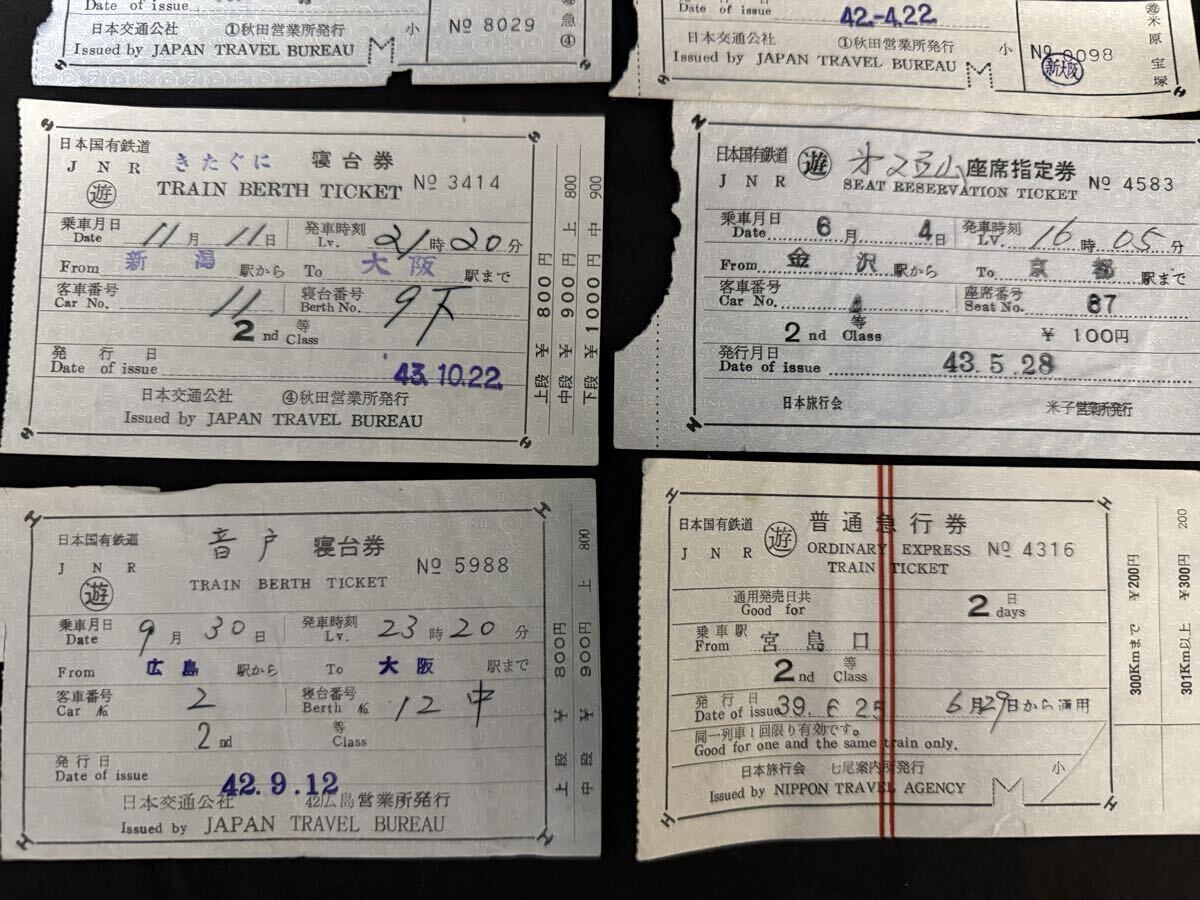 Date of issue
日本交通公社 ①秋田営業所発行
Issued by JAPAN TRAVEL BUREAU
小
№ 8029
急
④
Date of issue
42.-4.22
日本交通公社 ①秋田営業所発行
Issued by JAPAN TRAVEL BUREAU
小
№ 0098
新大阪
米原
宝塚
日本国有鉄道
きたぐに 寝台券
J N R
遊
TRAIN BERTH TICKET № 3414
乗車月日 11月 11日 発車時刻 21時 20分
Date Lv.
From 新潟 駅から To 大阪 駅まで
客車番号 11 寝台番号 9下
Car No. Berth No.
2 nd 等 Class
発行日
Date of issue 43.10.22.
日本交通公社 ④秋田営業所発行
Issued by JAPAN TRAVEL BUREAU
上段 ¥ 800円 上 800
中段 ¥ 900円 中 900
下段 ¥ 1000円
日本国有鉄道
J N R
遊
座席指定券
SEAT RESERVATION TICKET № 4583
乗車月日 6月 4日 発車時刻 16時 05分
Date Lv.
From 金沢 駅から To 京都 駅まで
客車番号 座席番号
Car No. Seat No. 67
2 nd 等 Class ¥ 100円
発行月日
Date of issue 43.5.28
日本旅行会 米子営業所発行
日本国有鉄道
音戸 寝台券
J N R
遊
TRAIN BERTH TICKET № 5988
乗車月日 9月 30日 発車時刻 23時 20分
Date Lv.
From 広島 駅から To 大阪 駅まで
客車番号 2 寝台番号 12 中
Car № Berth №
2 nd 等 Class
発行日
Date of issue
42.9.12
日本交通公社 42広島営業所発行
Issued by JAPAN TRAVEL BUREAU
上段 ¥ 800円 上 800
中段 ¥ 900円
日本国有鉄道
J N R
遊
普通急行券
ORDINARY EXPRESS № 4316
TRAIN TICKET
通用発売日共 2 日
Good for days
乗車駅 宮島口
From
2 nd 等 Class
発行日
Date of issue 39.6.25 6月29日から通用
同一列車1回限り有効です。
Good for one and the same train only.
日本旅行会 七尾案内所発行
小
Issued by NIPPON TRAVEL AGENCY
300Kmまで ¥200円
301Km以上 ¥300円 200